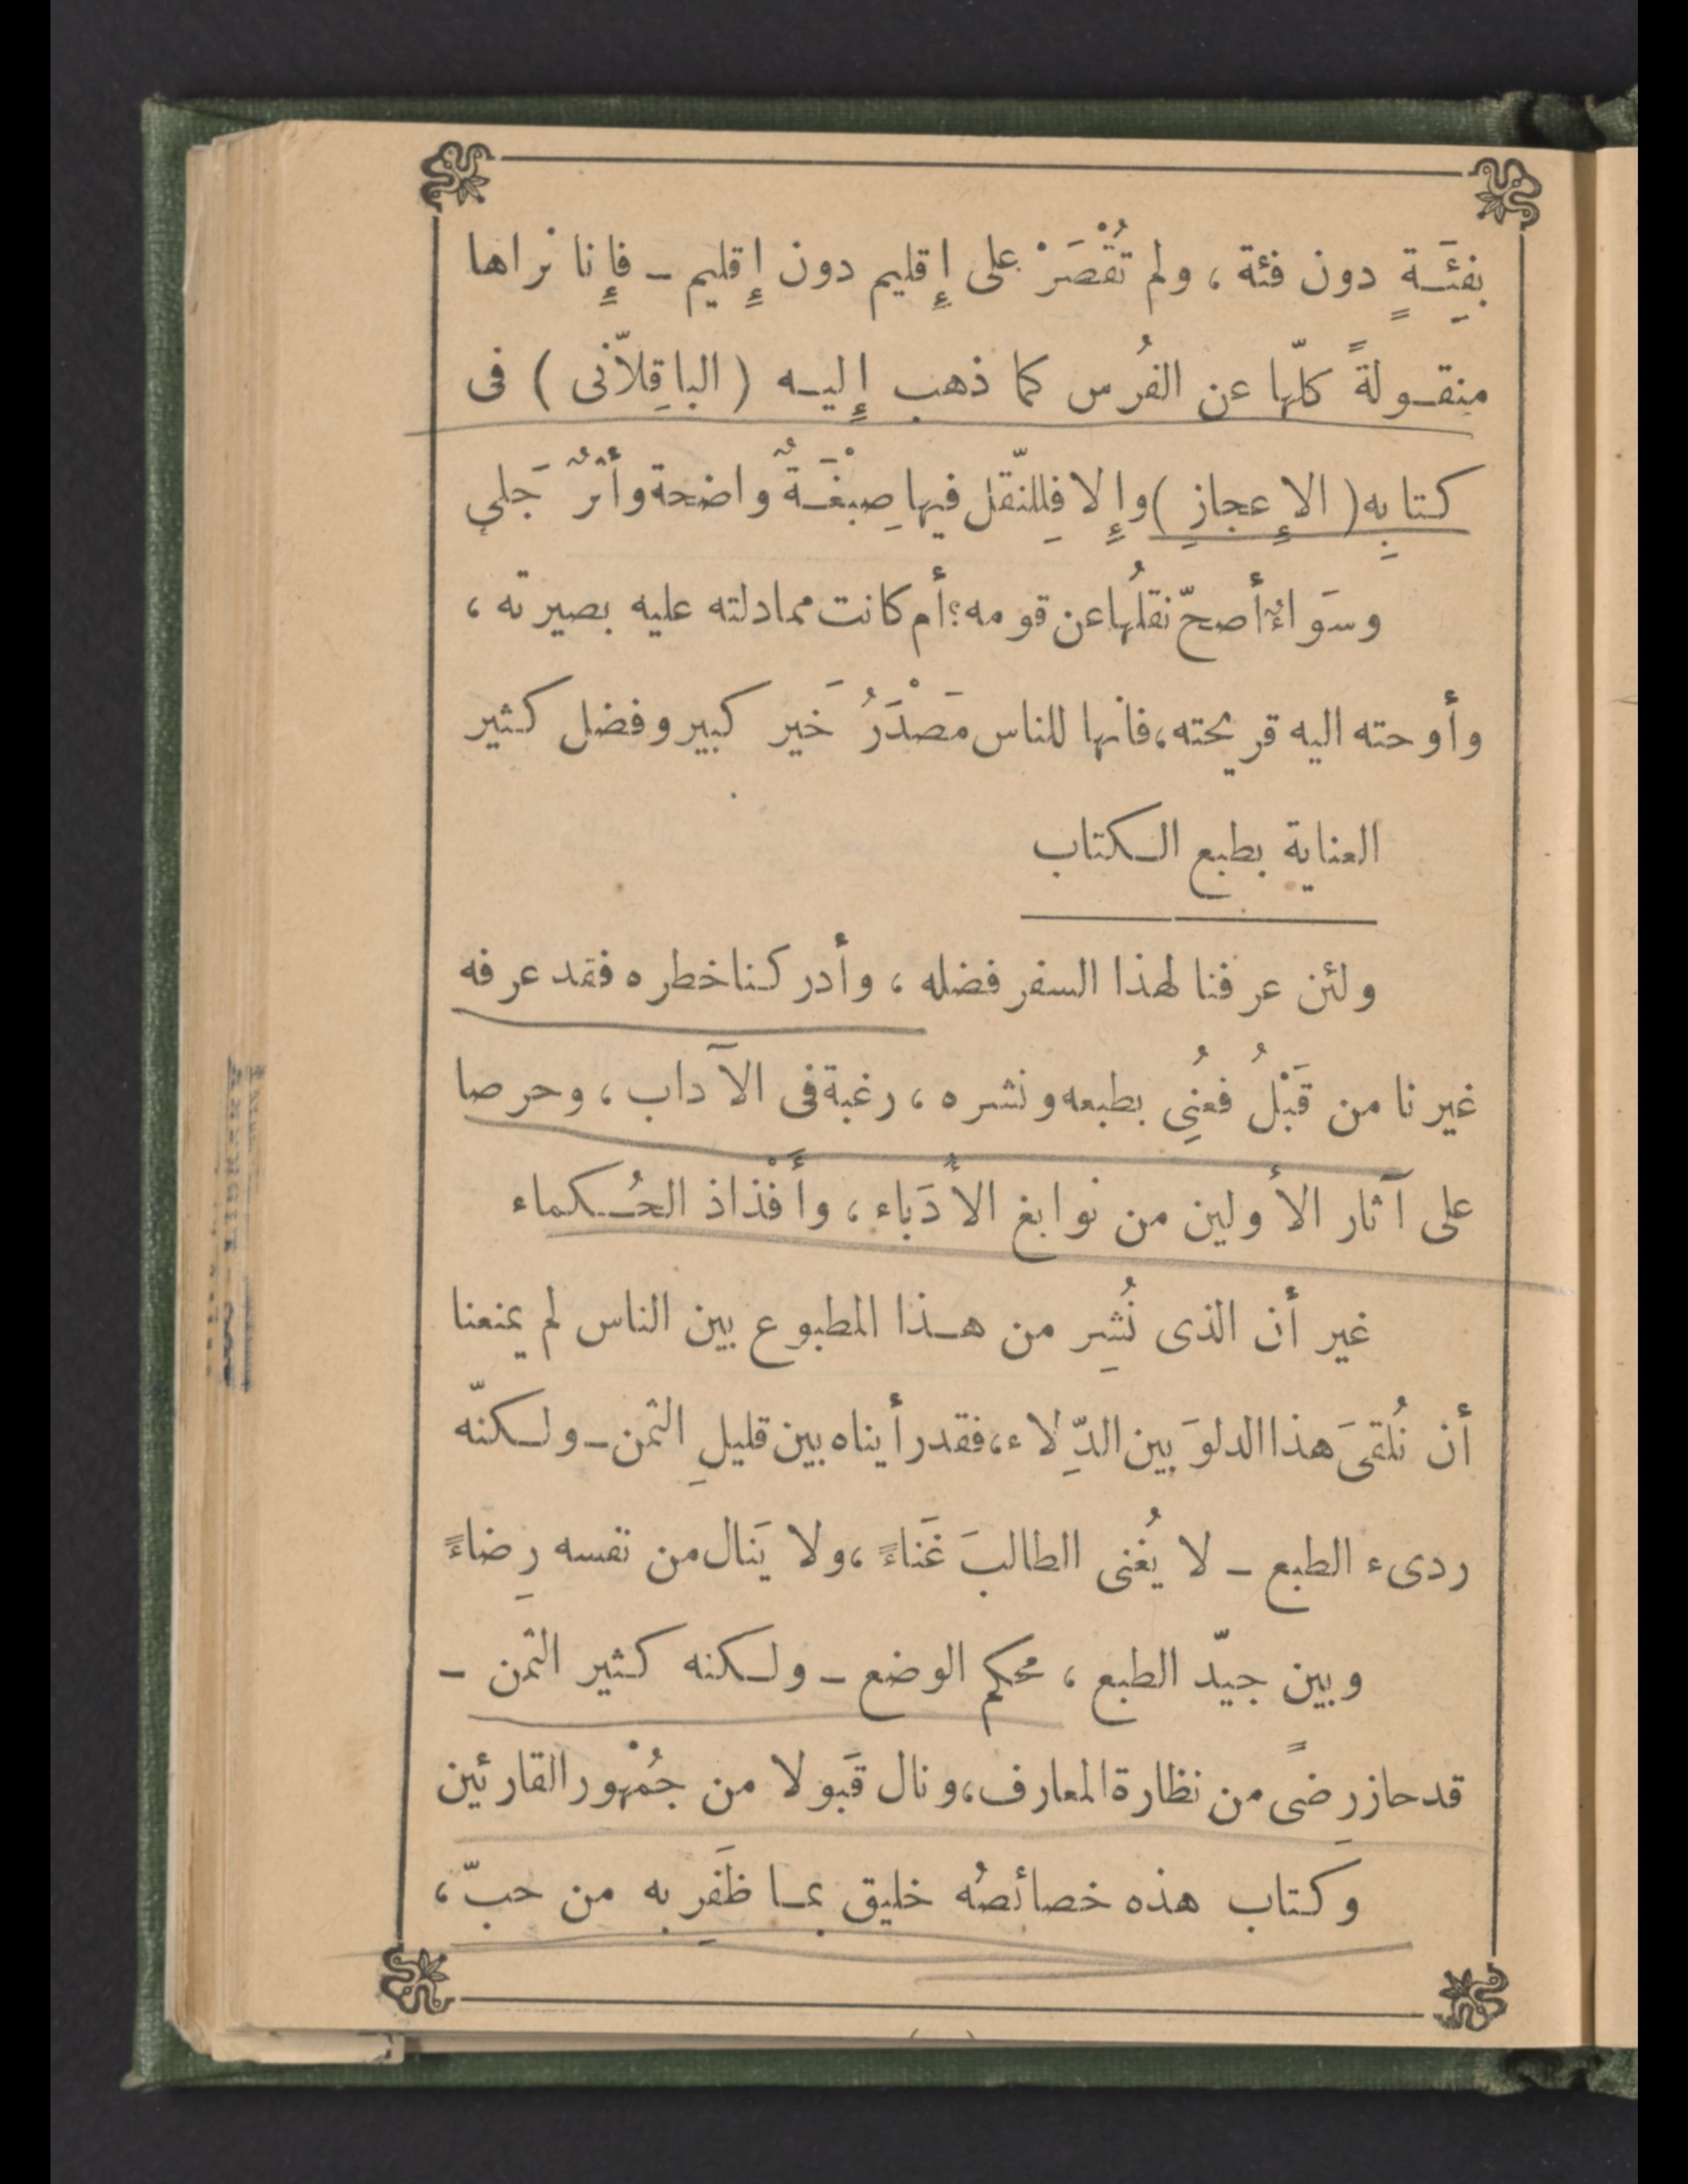 بفِئَةٍ دون فئة ، ولم تُقْصَرْ على إِقليم دون إِقليم – فإِنا نراها
منقولةً كلّها عن الفُرس كما ذهب إِليه ( الباقِلاّنى ) فى
كتابِه ( الإِعجازِ ) وإِلا فِللنّقل فيها صِبْغَةٌ واضحة وأثرٌ جَلى
وسَواءٌ أصحّ نقلُها عن قومه؟ أم كانت مما دلته عليه بصيرته ،
وأوحته اليه قريحته، فانها للناس مَصْدَرُ خَير كبير وفضل كثير
العناية بطبع الكتاب
ولئن عرفنا لهذا السفر فضله ، وأدركنا خطره فقد عرفه
غيرنا من قَبْلُ فعُنِى بطبعه ونشره ، رغبة فى الآداب ، وحرصا
على آثار الأولين من نوابغ الأُدَباء ، وأَفْذاذ الحُكماء
غير أن الذى نُشِر من هذا المطبوع بين الناس لم يمنعنا
أن نُلقىَ هذا الدلوَ بين الدِّلاء، فقد رأيناه بين قليلِ الثمن – ولكنّه
ردىء الطبع – لا يُغنى الطالبَ غَناءً ، ولا يَنال من نفسه رِضاءً
وبين جيّد الطبع ، محكم الوضع – ولكنه كثير الثمن –
قد حاز رِضىً من نظارة المعارف، ونال قَبولا من جُمْهور القارئين
وكتاب هذه خصائصُه خليق بما ظَفَرِ به من حبّ ،